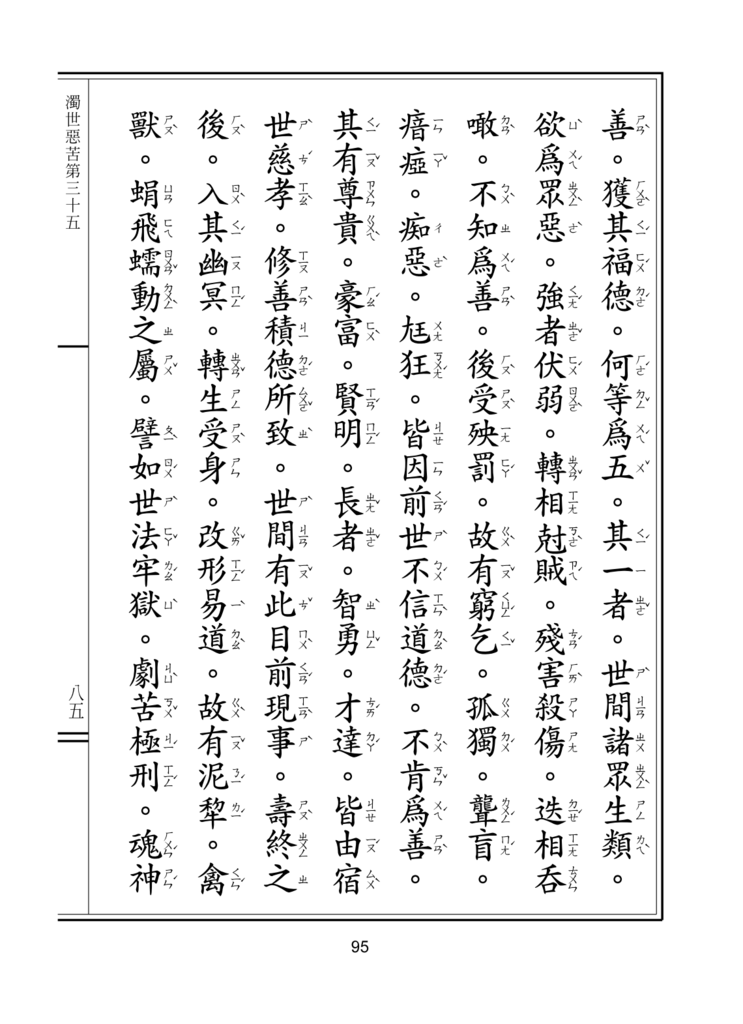 善。獲其福德。何等爲五。其一者。世間諸眾生類。
欲爲眾惡。強者伏弱。轉相尅賊。殘害殺傷。迭相吞
噉。不知爲善。後受殃罰。故有窮乞。孤獨。聾盲。
瘖瘂。痴惡。尪狂。皆因前世不信道德。不肯爲善。
其有尊貴。豪富。賢明。長者。智勇。才達。皆由宿
世慈孝。修善積德所致。世間有此目前現事。壽終之
後。入其幽冥。轉生受身。改形易道。故有泥犂。禽
獸。蜎飛蠕動之屬。譬如世法牢獄。劇苦極刑。魂神
濁世惡苦第三十五
八五
95